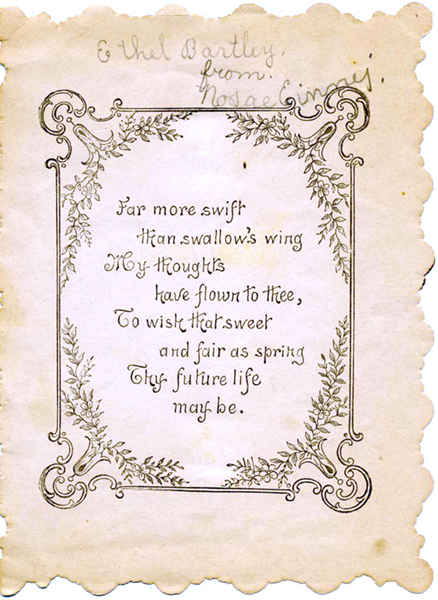 Ethel Bartley.
from.
Far more swift
than swallow's wing
My thoughts
have flown to thee,
To wish that sweet
and fair as spring
Thy future life
may be.